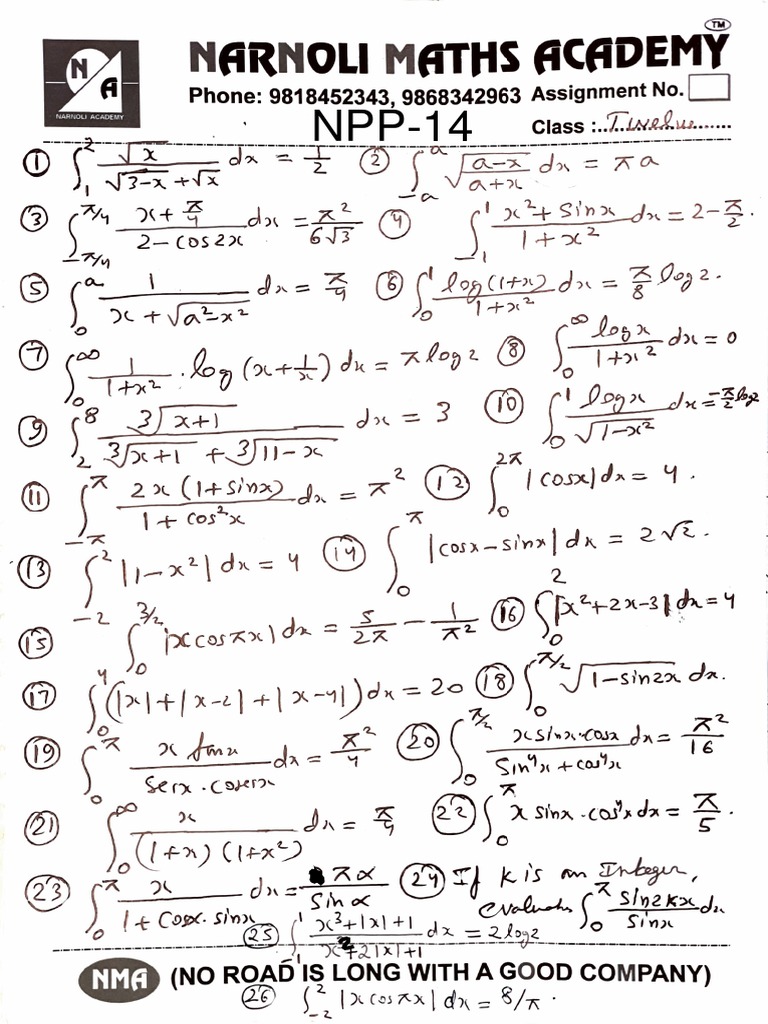 N A
NARNOLI ACADEMY
NARNOLI MATHS ACADEMY TM
Phone: 9818452343, 9868342963 Assignment No.
NPP-14
Class :..Twelve
① ∫₁² √x / (√(3-x) + √x) dx = 1/2 ② ∫₋ₐᵃ √((a-x)/(a+x)) dx = πa
③ ∫_{-π/4}^{π/4} (x + π/4)/(2 - cos2x) dx = π²/(6√3) ④ ∫₋₁¹ (x² + sinx)/(1+x²) dx = 2 - π/2.
⑤ ∫₀ᵃ 1/(x + √(a²-x²)) dx = π/4 ⑥ ∫₀¹ log(1+x)/(1+x²) dx = π/8 log2.
⑦ ∫₀^∞ 1/(1+x²) · log(x + 1/x) dx = π log2 ⑧ ∫₀^∞ logx/(1+x²) dx = 0
⑨ ∫₂⁸ ³√(x+1) / (³√(x+1) + ³√(11-x)) dx = 3 ⑩ ∫₀¹ logx/√(1-x²) dx = -π/2 log2
⑪ ∫_{-π}^{π} 2x(1+sinx)/(1+cos²x) dx = π² ⑫ ∫₀^{2π} |cosx| dx = 4.
⑬ ∫₋₂² |1-x²| dx = 4 ⑭ ∫₀^π |cosx - sinx| dx = 2√2.
⑮ ∫₀^{3/2} |x cosπx| dx = 5/(2π) - 1/π² ⑯ ∫₀² |x²+2x-3| dx = 4
⑰ ∫₀⁴ (|x| + |x-2| + |x-4|) dx = 20 ⑱ ∫₀^{π/2} √(1-sin2x) dx.
⑲ ∫₀^π x tanx/(secx · cosecx) dx = π²/4 ⑳ ∫₀^{π/2} x sinx·cosx/(sin⁴x + cos⁴x) dx = π²/16
㉑ ∫₀^∞ x/((1+x)(1+x²)) dx = π/4 ㉒ ∫₀^π x sinx·cos⁴x dx = π/5.
㉓ ∫₀^π x/(1 + cosα·sinx) dx = πα/sinα ㉔ If K is an Integer,
evaluate ∫₀^π sin2kx/sinx dx
㉕ ∫₋₁¹ (x³+|x|+1)/(x²+2|x|+1) dx = 2log2
NMA (NO ROAD IS LONG WITH A GOOD COMPANY)
㉖ ∫₋₂² |x cosπx| dx = 8/π.